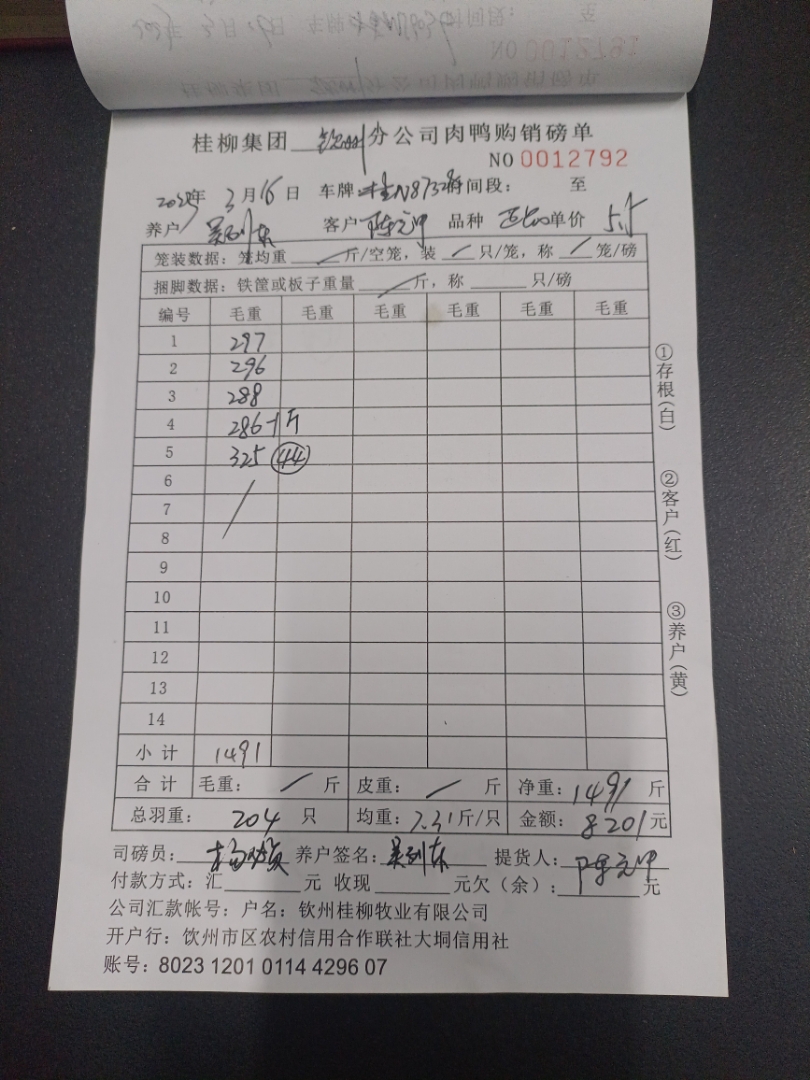 桂柳集团 钦州 分公司肉鸭购销磅单
NO 0012792
年 3月16日 车牌:桂N8732 时间段: 至
养户 吴列东 客户 陈元甲 品种 单价 5.5
笼装数据: 笼均重 / 斤/空笼, 装 / 只/笼, 称 / 笼/磅
捆脚数据: 铁筐或板子重量 / 斤, 称 只/磅
编号 毛重 毛重 毛重 毛重 毛重 毛重
1 297
2 296
3 288
4 286-1斤
5 325 44
6
7 /
8
9
10
11
12
13
14
小计 1491
合计 毛重: / 斤 皮重: / 斤 净重: 1491 斤
总羽重: 204 只 均重: 7.31斤/只 金额: 8201元
司磅员: 养户签名: 吴列东 提货人: 陈元甲
付款方式: 汇 元 收现 元欠(余): 元
公司汇款帐号: 户名: 钦州桂柳牧业有限公司
开户行: 钦州市区农村信用合作联社大垌信用社
账号: 8023 1201 0114 4296 07
①存根(白)
②客户(红)
③养户(黄)